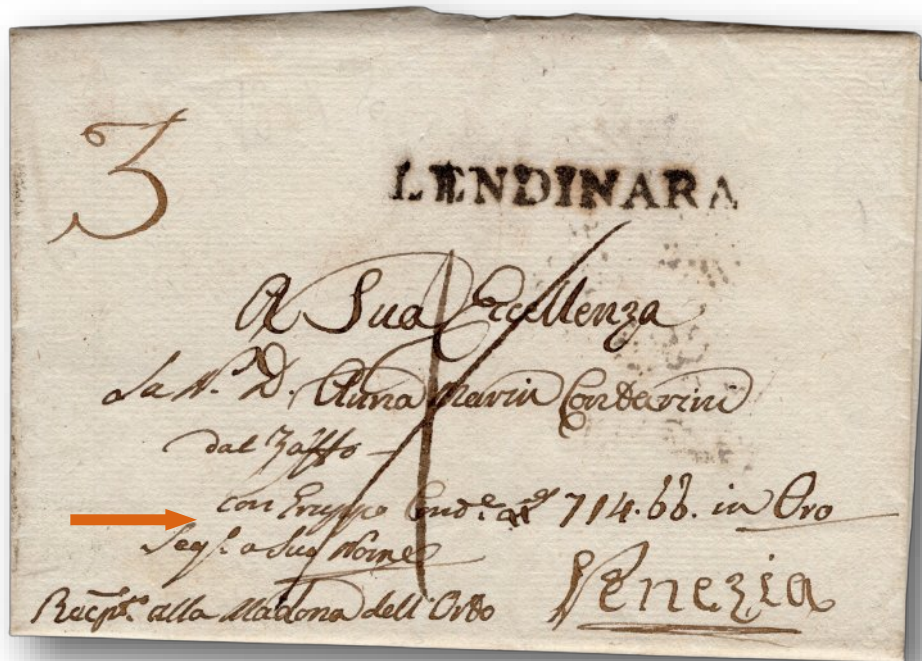 3
LENDINARA
A Sua Eccellenza
La N. D. Anna Marin Contarini
dal Zaffo
con Gruppo 714. in Oro
a Suo Nome
Venezia
alla Madona dell'Orto